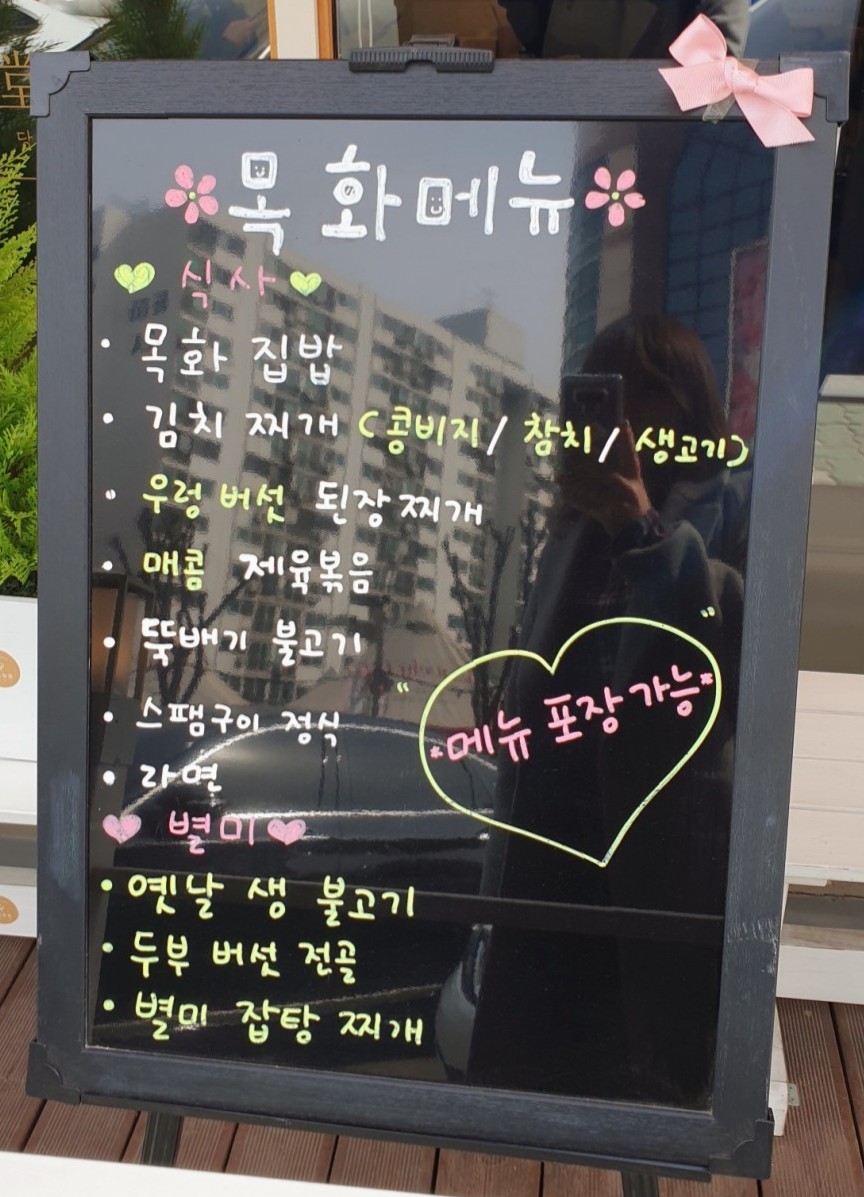 목화메뉴
식사
• 목화 집밥
• 김치 찌개 (콩비지/ 참치/ 생고기)
• 우렁 버섯 된장 찌개
• 매콤 제육볶음
• 뚝배기 불고기
• 스팸구이 정식
• 라면
" *메뉴 포장 가능* "
별미
• 옛날 생 불고기
• 두부 버섯 전골
• 별미 잡탕 찌개